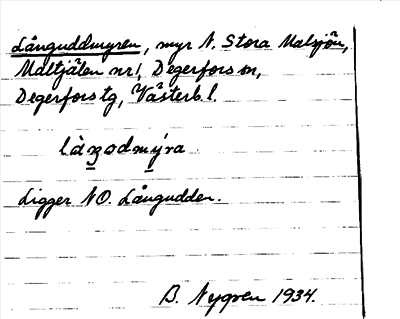 Långuddmyren, myr N. Stora Malsjön,
Maltjälen nr 1, Degerfors sn,
Degerfors tg, Västerb. l.
làŋodmýra
Ligger NO. Långudden.
B. Nygren 1934.